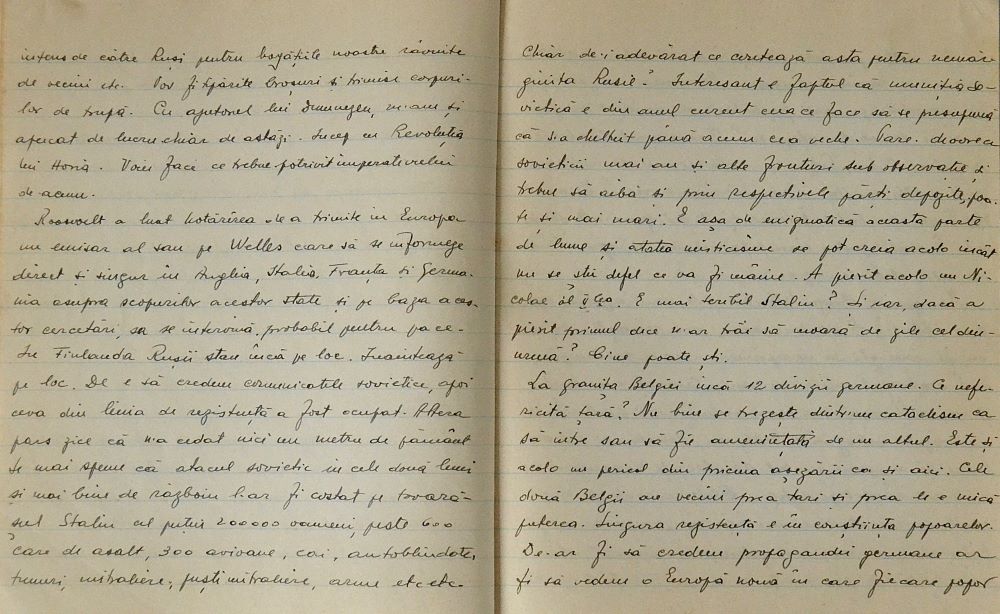 intens de către Ruși pentru bogățiile noastre râvnite
de vecini etc. Vor fi tipărite broșuri și trimise corpuri-
lor de trupă. Cu ajutorul lui Dumnezeu, m-am și
apucat de lucru chiar de astăzi. Încep cu Revoluția
lui Horia. Voiu face ce trebue potrivit imperativului
de acum.
Roosvelt a luat hotărîrea de a trimite în Europa
un emisar al său pe Welles care să se informeze
direct și singur în Anglia, Italia, Franța și Germa-
nia asupra scopurilor acestor state și pe baza aces-
tor cercetări sa se intervină, probabil pentru pace.
In Finlanda Rușii stau încă pe loc. Inaintează
pe loc. De e să credem comunicatele sovietice, apoi
ceva din linia de rezistență a fost ocupat. Altera
pars zice că n-a cedat nici un metru de pământ.
Se mai spune că atacul sovietic în cele două luni
și mai bine de războiu l-ar fi costat pe tovară-
șul Stalin cel puțin 200000 oameni, peste 600
care de asalt, 300 avioane, cai, autoblindate,
tunuri, mitraliere, puști mitraliere, arme etc etc.
Chiar de-i adevărat ce cercetează asta pentru nemăr-
ginita Rusie? Interesant e faptul că muniția so-
vietică e din anul curent ceiace face să se presupună
că s-a cheltuit până acum cea veche. Pare-se deoarece
sovieticii mai au și alte fronturi sub observație și
trebue să aibă și prin respectivele părți depozite, poa-
te și mai mari. E așa de enigmatică această parte
de lume și atatea misticisme se pot creia acolo incât
nu se știe defel ce va fi mâine. A pierit acolo un Ni-
colae al II lea. E mai teribil Stalin? Și iar, dacă a
pierit primul dece n-ar trăi să moară de zile cel din
urmă? Cine poate ști.
La granița Belgiei încă 12 divizii germane. Ce nefe-
ricită țară? Nu bine se trezește dintr-un cataclism ca
să intre sau să fie amenințată de un altul. Este și
acolo un pericol din pricina așezării ca și aici. Cele
două Belgii au vecini prea tari și prea le e mică
puterea. Singura rezistență e în conștiința popoarelor.
De-ar fi să credem propagandei germane ar
fi să vedem o Europă nouă în care fiecare popor